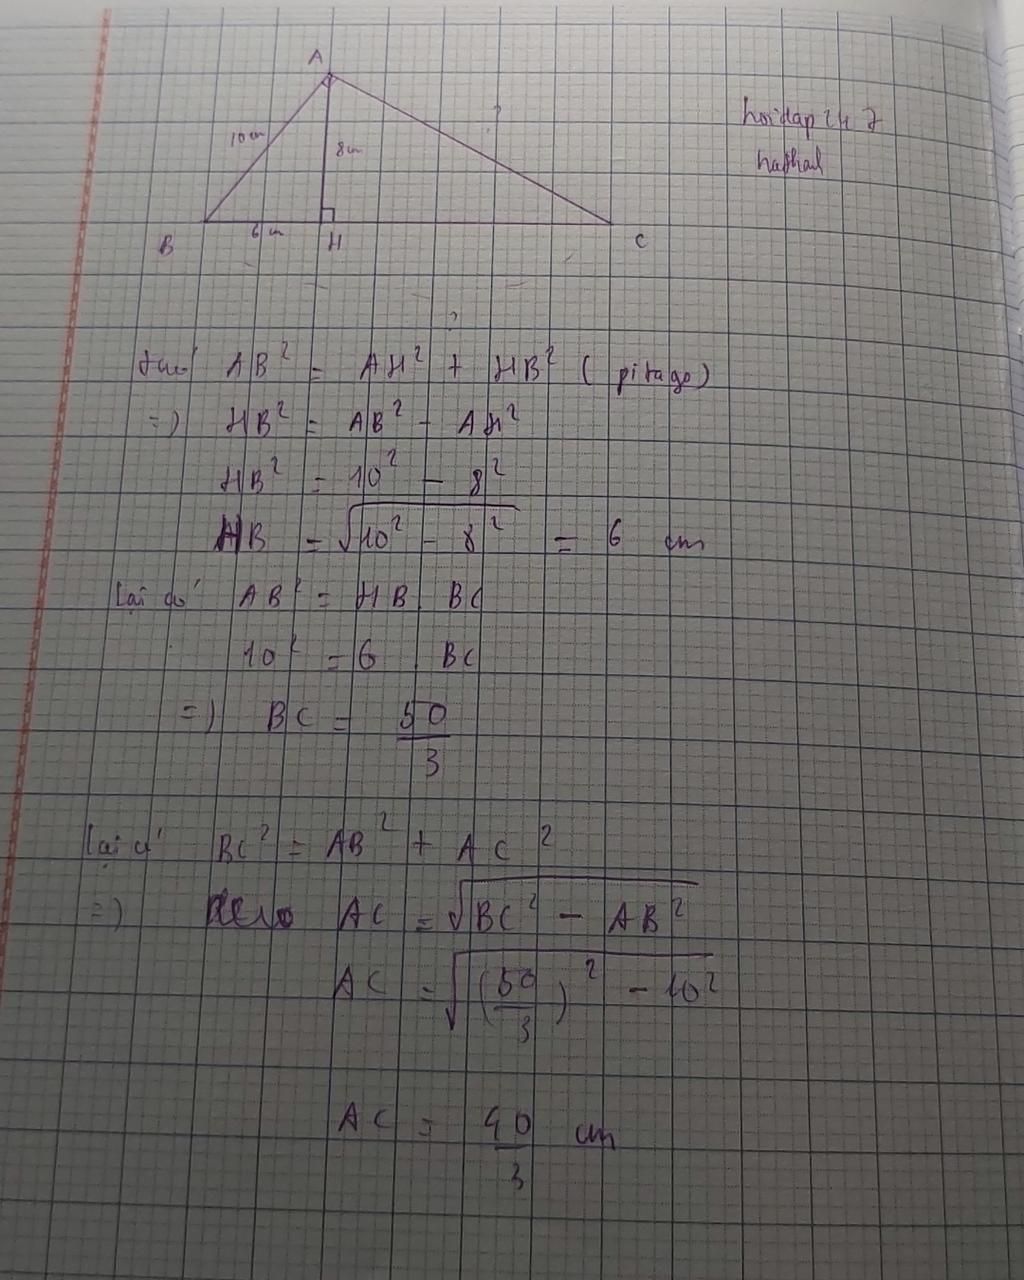 A
10 cm
8 cm
?
6 cm
B
H
C
hoidap 247
?
ta có AB² = AH² + HB² ( pitago)
=) HB² = AB² - AH²
HB² = 10² - 8²
HB = √10² - 8² = 6 cm
lại có AB² = HB . BC
10² = 6 . BC
=) BC = 50/3
lại có BC² = AB² + AC²
=) AC = √BC² - AB²
AC = √(50/3)² - 10²
AC = 40/3 cm